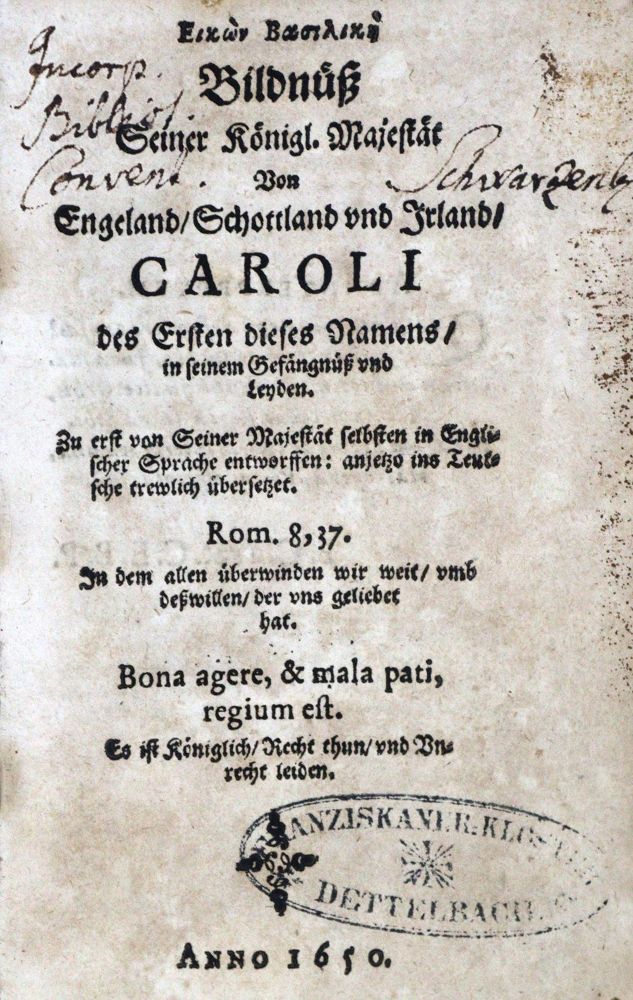 Εικὼν Βασιλικὴ
Incorp.
Bildnüß
Biblio
Seiner Königl. Majestät
Convent.
Von
Schwarzenb
Engeland/Schottland vnd Irland/
CAROLI
des Ersten dieses Namens/
in seinem Gefängnüß vnd
Leyden.
Zu erst von Seiner Majestät selbsten in Engli-
scher Sprache entworffen: anjetzo ins Teut-
sche trewlich übersetzet.
Rom. 8,37.
In dem allen überwinden wir weit/ vmb
deßwillen/ der vns geliebet
hat.
Bona agere, & mala pati,
regium est.
Es ist Königlich/ Recht thun/ vnd Vn-
recht leiden.
FRANZISKANER-KLOSTER
DETTELBACH
ANNO 1650.